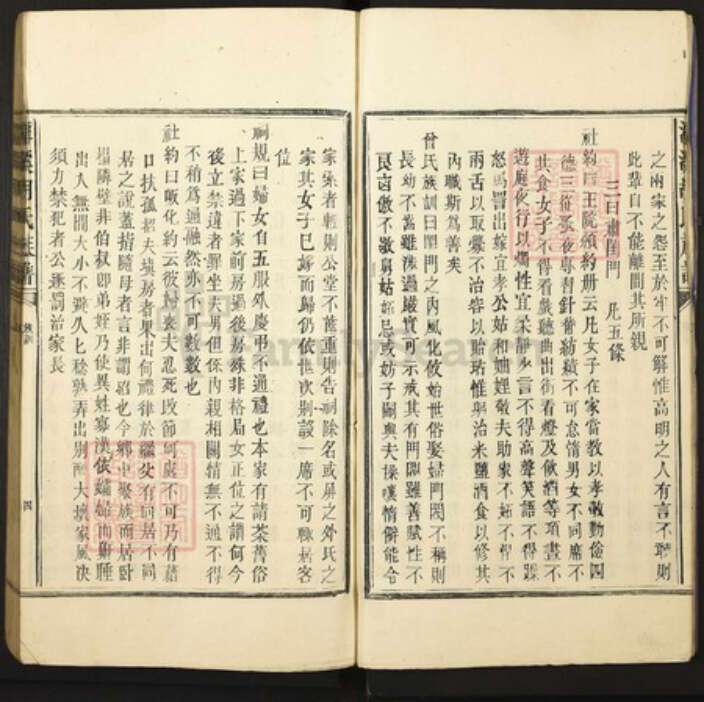 之兩家之怨至於牢不可解惟高明之人有言不聽則
此輩自不能離間其所親
三曰肅閨門 凡五條
社約曰王院頒約冊云凡女子在家當教以孝敬勤儉四
德三從蚤夜專習針黹紡績不可怠惰男女不同席不
共食女子不得看戲聽曲出街看燈及飲酒等項晝不
遊庭夜行以燭性宜柔靜少言不得高聲笑語不得躁
怒罵詈出嫁宜孝公姑和妯娌敬夫助家不妬不悍不
兩舌以取釁不治容以貽玷惟與治米鹽酒食以修其
內職斯為善矣
曾氏族訓曰閨門之內風化攸始世俗娶婦門閥不稱則
長幼不當雖涉過嚴實可示戒其有門閥雖善賦性不
良凶傲不敬舅姑妬忌或妨子嗣與夫操嘆惰僻能令
家索者輕則公堂不筵重則告祠除名或屏之外氏之
家其女子已嫁而歸仍依世次別設一席不可輒居客
位
祠規曰婦女自五服外慶弔不通禮也本家有請茶舊俗
上家過下家前房過後房殊非格局女正位之謂何今
後立禁違者罪坐夫男但係內親相關情無不通不得
不稍為通融然亦不可數數也
社約曰畈化約云彼婦喪夫忍死改節何處不可乃有藉
口扶孤招夫填房者果出何禮律於繼父有同居不同
居之說蓋指隨母者言非謂招也今鄉中聚族而居臥
榻隣壁非伯叔即弟姪乃使異姓寡漢依孀婦而鼾睡
出入無間大小不避久匕稔熟弄出別醜大壞家風决
須力禁犯者公逐罰治家長
族訓
四